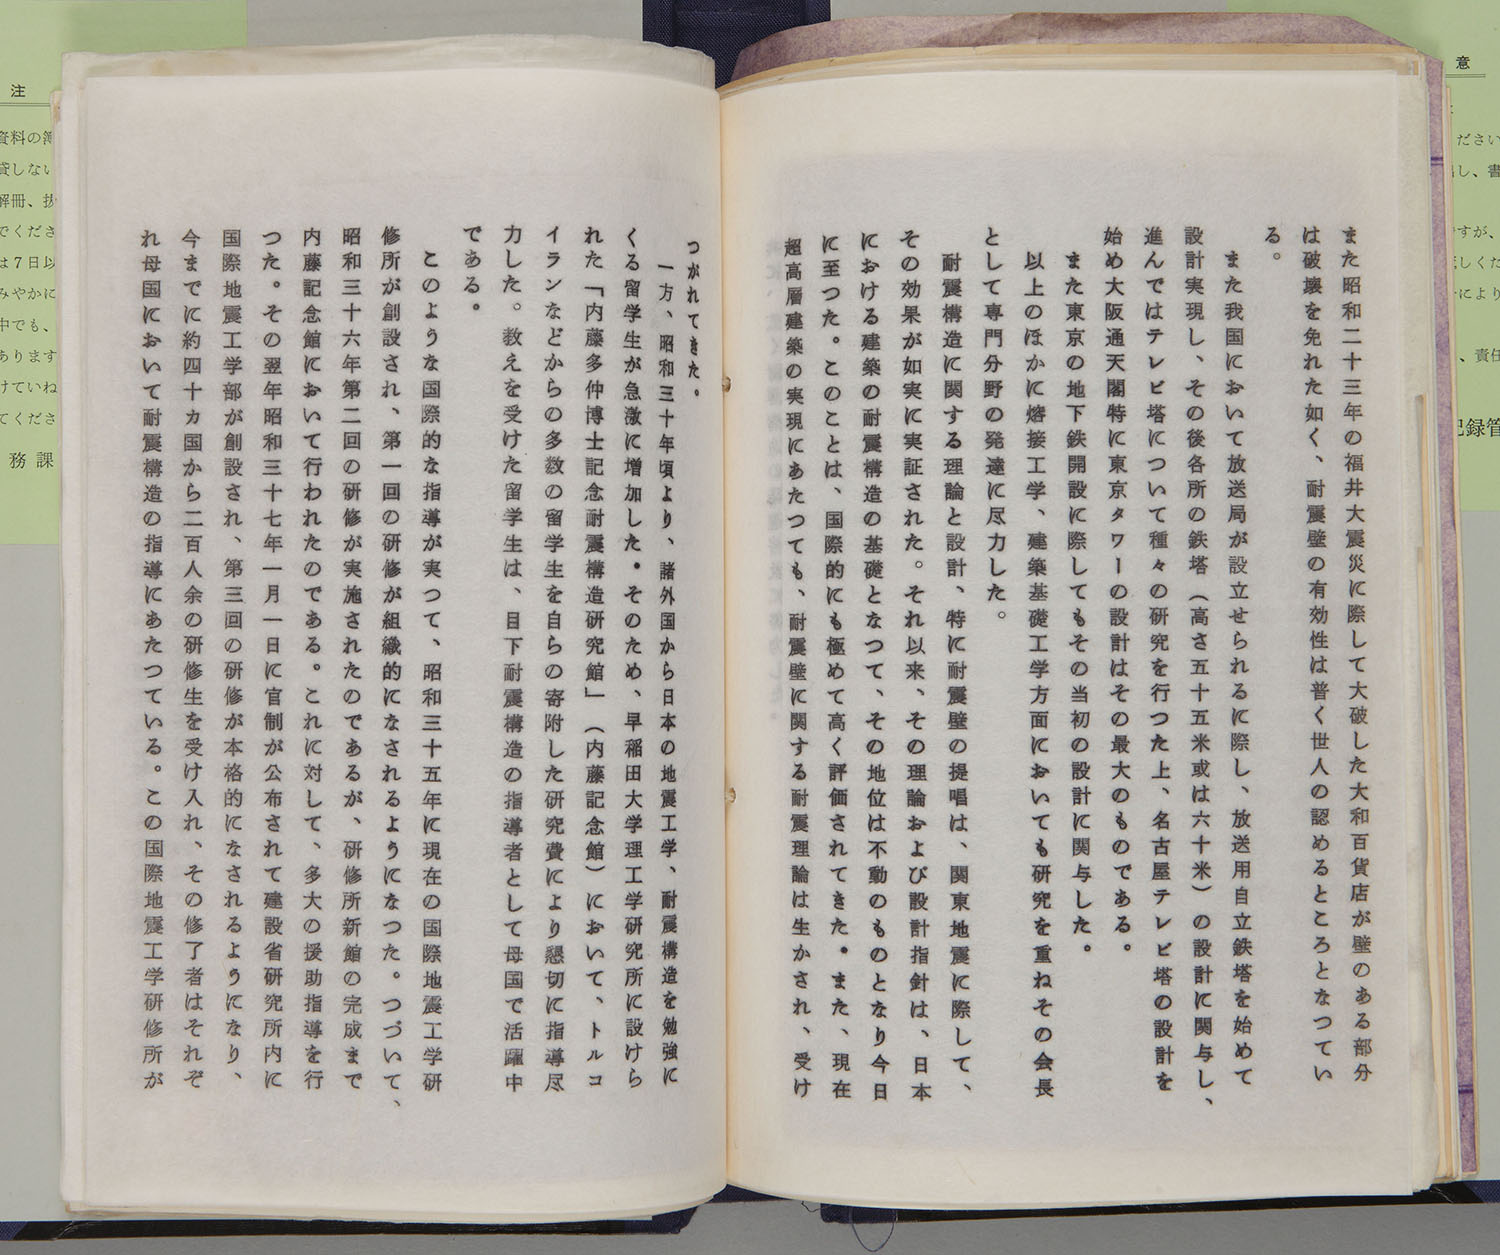 また昭和二十三年の福井大震災に際して大破した大和百貨店が壁のある部分
は破壊を免れた如く、耐震壁の有効性は普く世人の認めるところとなつてい
る。
また我国において放送局が設立せられるに際し、放送用自立鉄塔を始めて
設計実現し、その後各所の鉄塔（高さ五十五米或は六十米）の設計に関与し、
進んではテレビ塔について種々の研究を行つた上、名古屋テレビ塔の設計を
始め大阪通天閣特に東京タワーの設計はその最大のものである。
また東京の地下鉄開設に際してもその当初の設計に関与した。
以上のほかに熔接工学、建築基礎工学方面においても研究を重ねその会長
として専門分野の発達に尽力した。
耐震構造に関する理論と設計、特に耐震壁の提唱は、関東地震に際して、
その効果が如実に実証された。それ以来、その理論および設計指針は、日本
における建築の耐震構造の基礎となつて、その地位は不動のものとなり今日
に至つた。このことは、国際的にも極めて高く評価されてきた。また、現在
超高層建築の実現にあたつても、耐震壁に関する耐震理論は生かされ、受け
つがれてきた。
一方、昭和三十年頃より、諸外国から日本の地震工学、耐震構造を勉強に
くる留学生が急激に増加した。そのため、早稲田大学理工学研究所に設けら
れた「内藤多仲博士記念耐震構造研究館」（内藤記念館）において、トルコ
イランなどからの多数の留学生を自らの寄附した研究費により懇切に指導尽
力した。教えを受けた留学生は、目下耐震構造の指導者として母国で活躍中
である。
このような国際的な指導が実つて、昭和三十五年に現在の国際地震工学研
修所が創設され、第一回の研修が組織的になされるようになつた。つづいて、
昭和三十六年第二回の研修が実施されたのであるが、研修所新館の完成まで
内藤記念館において行われたのである。これに対して、多大の援助指導を行
つた。その翌年昭和三十七年一月一日に官制が公布されて建設省研究所内に
国際地震工学部が創設され、第三回の研修が本格的になされるようになり、
今までに約四十カ国から二百人余の研修生を受け入れ、その修了者はそれぞ
れ母国において耐震構造の指導にあたつている。この国際地震工学研修所が
注
資料の簿
貸しない
解冊、抜
でくださ
は7日以
みやかに
中でも、
あります
けていね
てくださ
務課
意
ださい
し、書
すが、
しくだ
により
、責任
記録管